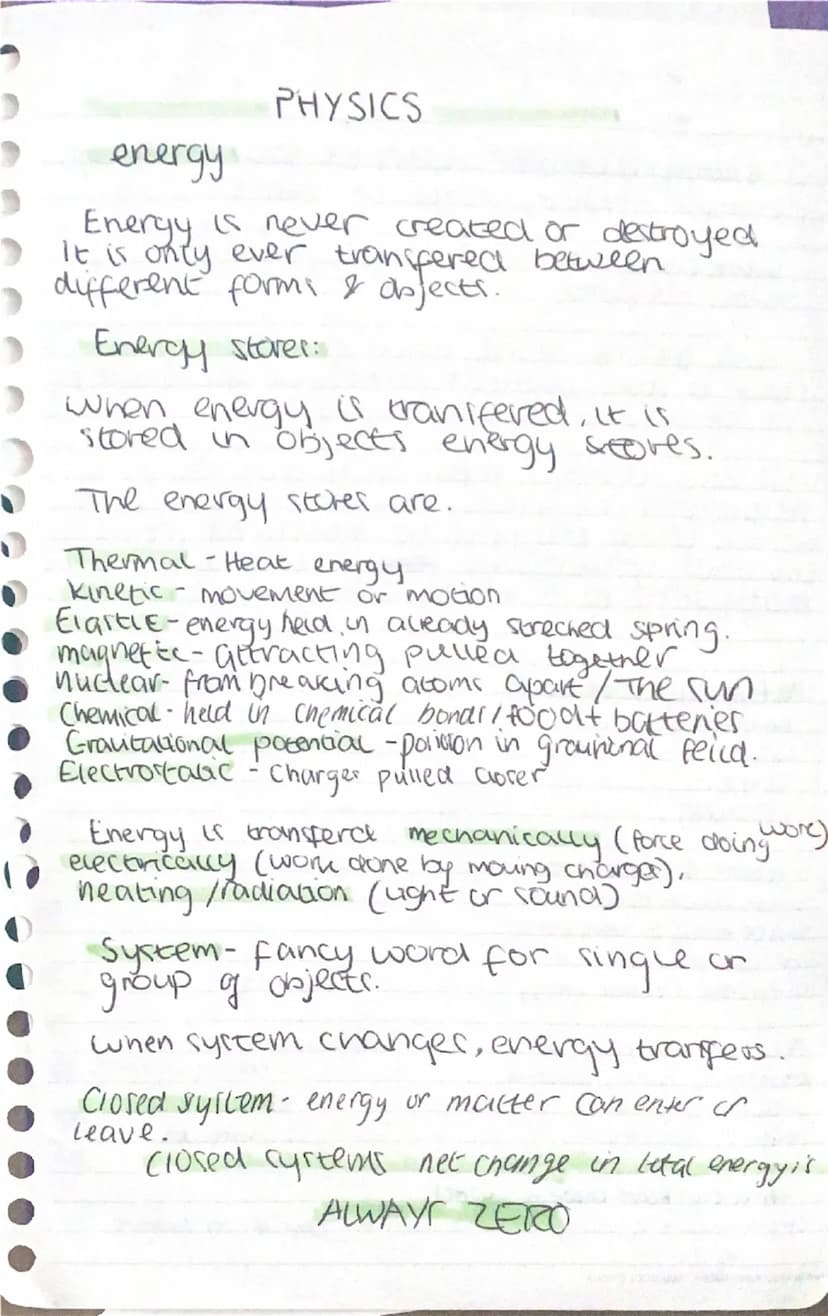 PHYSICS
energy
Energy is never created or destroyed
It is only ever transfered between
different forms & objects.
Energy stores:
When energy is transfered, it is
stored in objects energy stores.
The energy stores are.
Thermal - Heat energy
Kinetic - movement or motion
Elastic - energy held in already streched spring.
magnetic - attracting pulled together
nuclear - from breaking atoms apart / The sun
Chemical - held in chemical bonds / food + batteries
Gravitational potential - posision in feild.
Electrostatic - charges pulled closer
Energy is transferd mechanically (force doing work)
electrically (work done by moving charges),
heating / radiation (light or sound)
System - fancy word for single or
group of objects.
When system changes, energy transfers.
Closed system - energy or matter can enter or
leave.
Closed systems net change in total energy is
ALWAYS ZERO